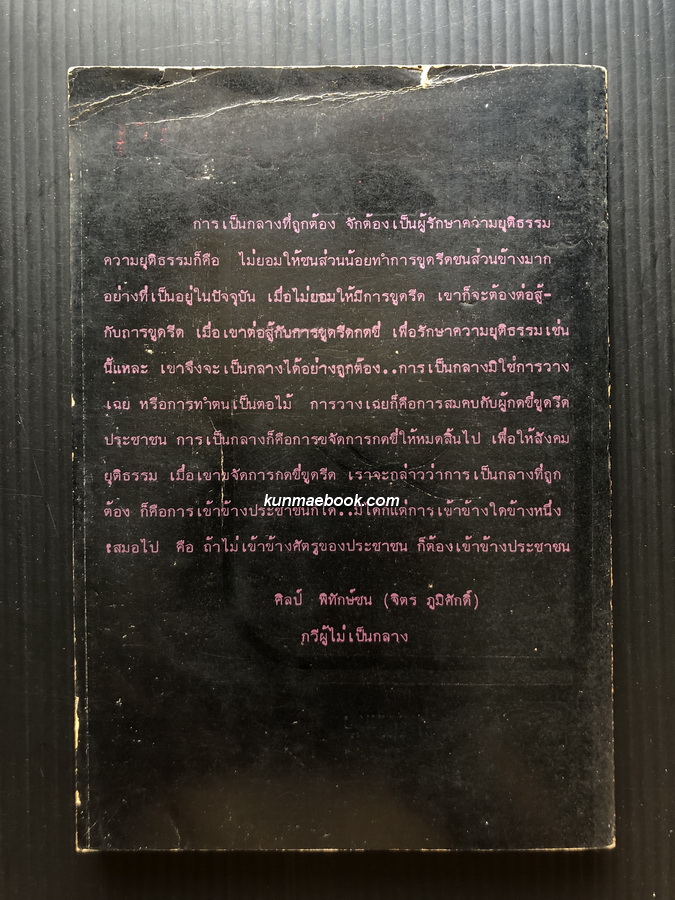 การเป็นกลางที่ถูกต้อง จักต้องเป็นผู้รักษาความยุติธรรม
ความยุติธรรมก็คือ ไม่ยอมให้ชนส่วนน้อยทำการขูดรีดชนส่วนข้างมาก
อย่างที่เป็นอยู่ในปัจจุบัน เมื่อไม่ยอมให้มีการขูดรีด เขาก็จะต้องต่อสู้-
กับการขูดรีด เมื่อเขาต่อสู้กับการขูดรีดกดขี่ เพื่อรักษาความยุติธรรมเช่น
นี้แหละ เขาจึงจะเป็นกลางได้อย่างถูกต้อง..การเป็นกลางมิใช่การวาง
เฉย หรือการทำตนเป็นตอไม้ การวางเฉยก็คือการสมคบกับผู้กดขี่ขูดรีด
ประชาชน การเป็นกลางก็คือการขจัดการกดขี่ให้หมดสิ้นไป เพื่อให้สังคม
ยุติธรรม เมื่อเขาขจัดการกดขี่ขูดรีด เราจะกล่าวว่าการเป็นกลางที่ถูก
kunmaebook.com
ต้อง ก็คือการเข้าข้างประชาชนก็ได้..มิได้กแต่การเข้าข้างใดข้างหนึ่ง
เสมอไป คือ ถ้าไม่เข้าข้างศัตรูของประชาชน ก็ต้องเข้าข้างประชาชน
ศิลป์ พิทักษ์ชน (จิตร ภูมิศักดิ์)
กวีผู้ไม่เป็นกลาง